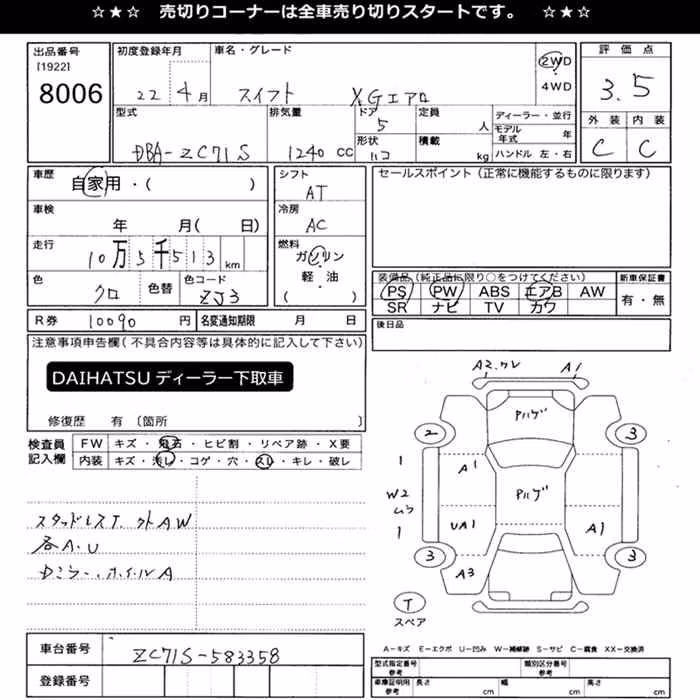 ☆★☆ 売切りコーナーは全車売り切りスタートです。 ☆★☆
出品番号 初度登録年月 車名・グレード 評価点
[1922]
8006 22 4月 スイフト XGエアロ 2WD 4WD 3.5
型式 排気量 ドア 定員 ディーラー・並行 外装 内装
DBA-ZC71S 1240 CC 5 人 モデル年式 年 C C
形状 積載 ハンドル 左・右
ハコ kg
車歴 自家用・( ) シフト AT セールスポイント(正常に機能するものに限ります)
車検 年 月(日) 冷房 AC
走行 10万5千513km 燃料 ガソリン・軽・油( )
色 クロ 色替 色コード ZJ3
装備品(純正品に限り○をつけてください) 新車保証書
PS PW ABS エアB AW 有・無
SR ナビ TV カワ
R券 10090円 名変通知期限 月 日
後日品
注意事項申告欄(不具合内容等は具体的に記入して下さい)
DAIHATSUディーラー下取車
修復歴 有〔箇所 〕
検査員記入欄 FW キズ・飛石・ヒビ割・リペア跡・X要
内装 キズ・汚レ・コゲ・穴・スレ・キレ・破レ
A2 ワレ A1
Pルーゲ
2 3
1 A1
W2 ムラ Pルーゲ
1 UA1 A1
3 3
A3
T
スペア
スタッドレスT.外AW
各A.U
ドミラー.ホイルA
A-キズ E-エクボ U-凹み W-補修跡 S-サビ C-腐食 XX-交換済
車台番号 ZC71S-583358
登録番号
型式指定番号 参考 類別区分番号 参考
車庫証明用 参考 長さ cm 幅 cm 高さ cm